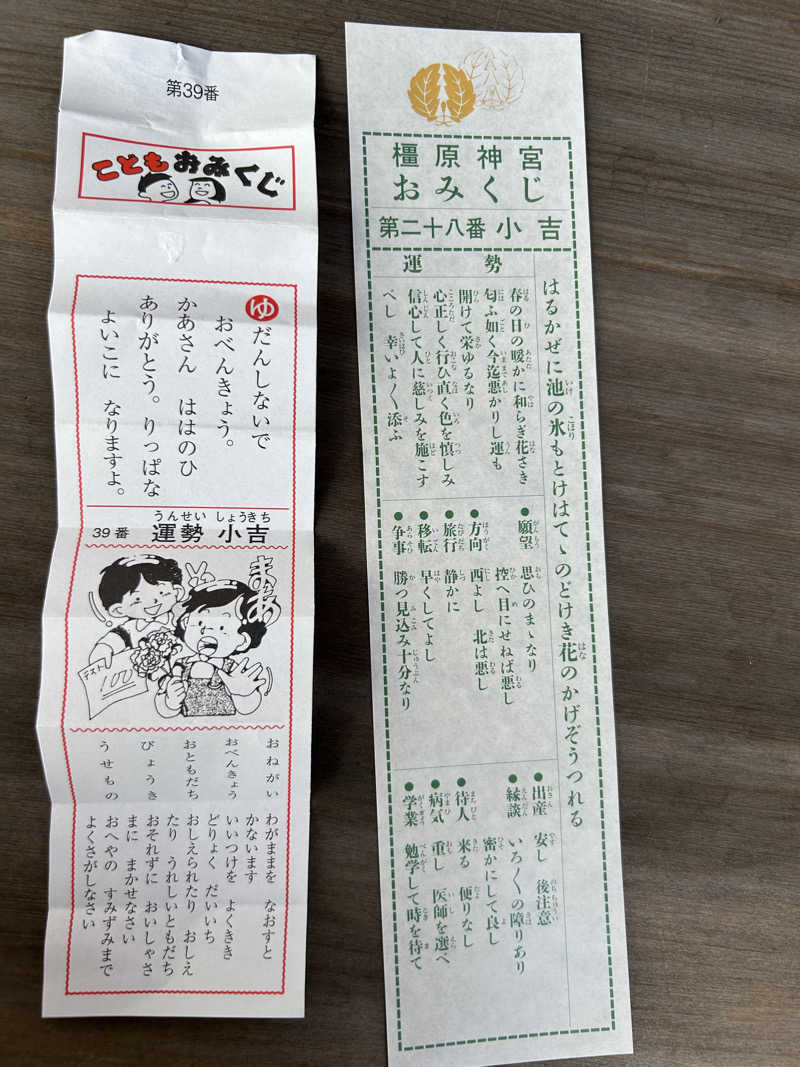 第39番
こどもおみくじ
ゆだんしないで
おべんきょう。
かあさん ははのひ
ありがとう。りっぱな
よいこに なりますよ。
うんせい しょうきち
39番 運勢 小吉
まあ
テスト
100
おねがい わがままを なおすと
かないます
おべんきょう いいつけを よくきき
どりょく だいいち
おともだち おしえられたり おしえ
たり うれしいともだち
びょうき おそれずに おいしゃさ
まに まかせなさい
うせもの おへやの すみずみまで
よくさがしなさい
橿原神宮
おみくじ
第二十八番 小吉
はるかぜに池の氷もとけはてゝのどけき花のかげぞうつれる
運勢
春の日の暖かに和らぎ花さき
匂ふ如く今迄悪かりし運も
開けて栄ゆるなり
心正しく行ひ直く色を慎しみ
信心して人に慈しみを施こす
べし 幸いよ〳〵添ふ
●願望 思ひのまゝなり
控へ目にせねば悪し
●方向 西よし 北は悪し
●旅行 静かに
●移転 早くしてよし
●争事 勝つ見込み十分なり
●出産 安し 後注意
●縁談 いろ〳〵の障りあり
密かにして良し
●待人 来る 便りなし
●病気 重し 医師を選べ
●学業 勉学して時を待て